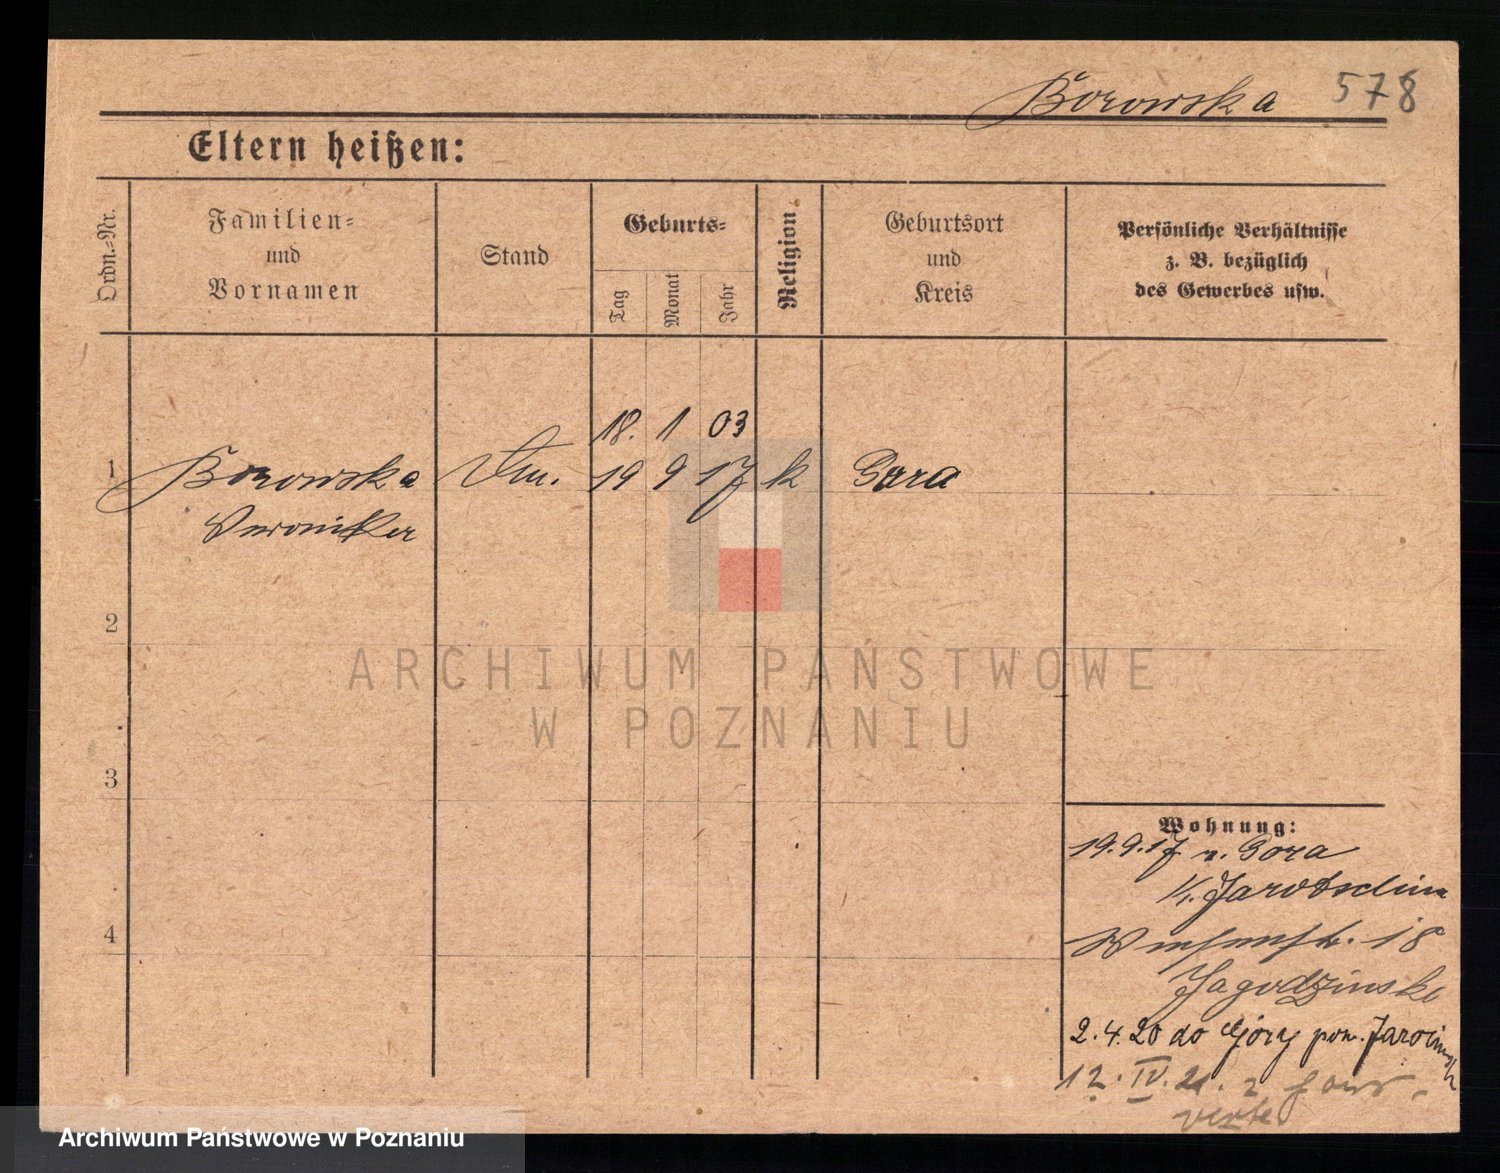 Borowska 578
Eltern heißen:
Ordn.-Nr.
Familien-
und
Vornamen
Stand
Geburts-
Tag
Monat
Jahr
Religion
Geburtsort
und
Kreis
Persönliche Verhältnisse
z. B. bezüglich
des Gewerbes usw.
18. 1 03
1 Borowska 19 9 17 k Gora
Veronika
2
3
4
Wohnung:
19.9.17 v. Gora
Jarotschin
18
Jagodzinski
2.4.20 do Góry pow. Jarocinsk
12. IV. 21. z
verte
ARCHIWUM PAŃSTWOWE
W POZNANIU
Archiwum Państwowe w Poznaniu